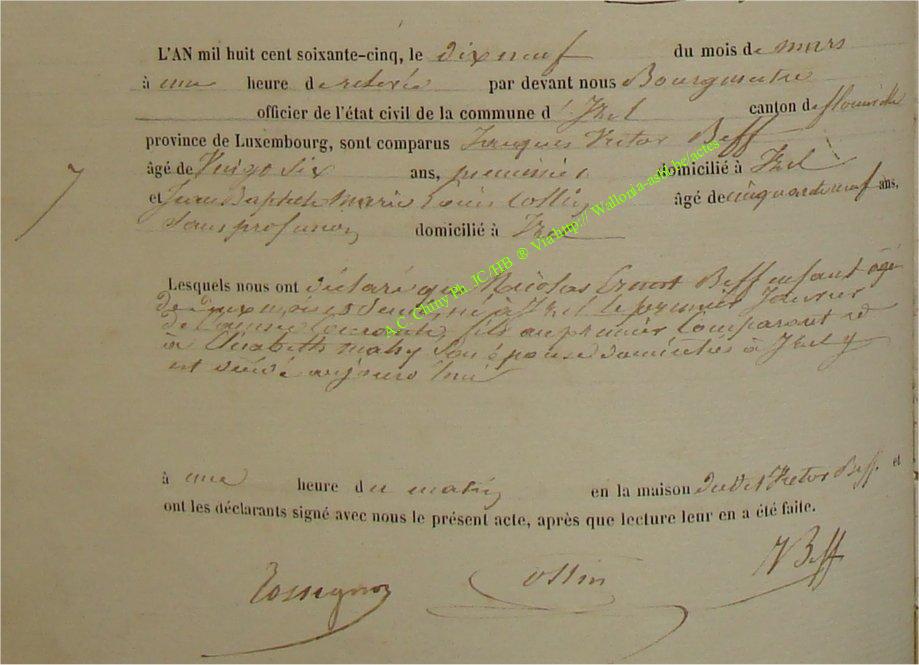 L'AN mil huit cent soixante-cinq, le dix neuf du mois de mars
à une heure de relevée par devant nous Bourgmestre
officier de l'état civil de la commune d'Izel canton de florenville
province de Luxembourg, sont comparus Jacques Victor Beff
âgé de Vingt Six ans, domicilié à Izel
et Jean Baptiste Marie Louis Collin âgé de cinquante neuf ans,
Sans profession domicilié à Izel
7
Lesquels nous ont déclaré que Nicolas Ernest Beff enfant âgé
de deux mois et demi né à Izel le premier Janvier
de l'année courante, fils du premier Comparant et
Elisabeth mahy Son épouse domiciliés à Izel y
est décédé aujourd'hui
à une heure du matin en la maison dudit Victor Beff. et
ont les déclarants signé avec nous le présent acte, après que lecture leur en a été faite.
Rossignon Collin V Beff
A.C. Chiny Ph. JC/HB ® Via http:// Wallonia-asbl.be/actes